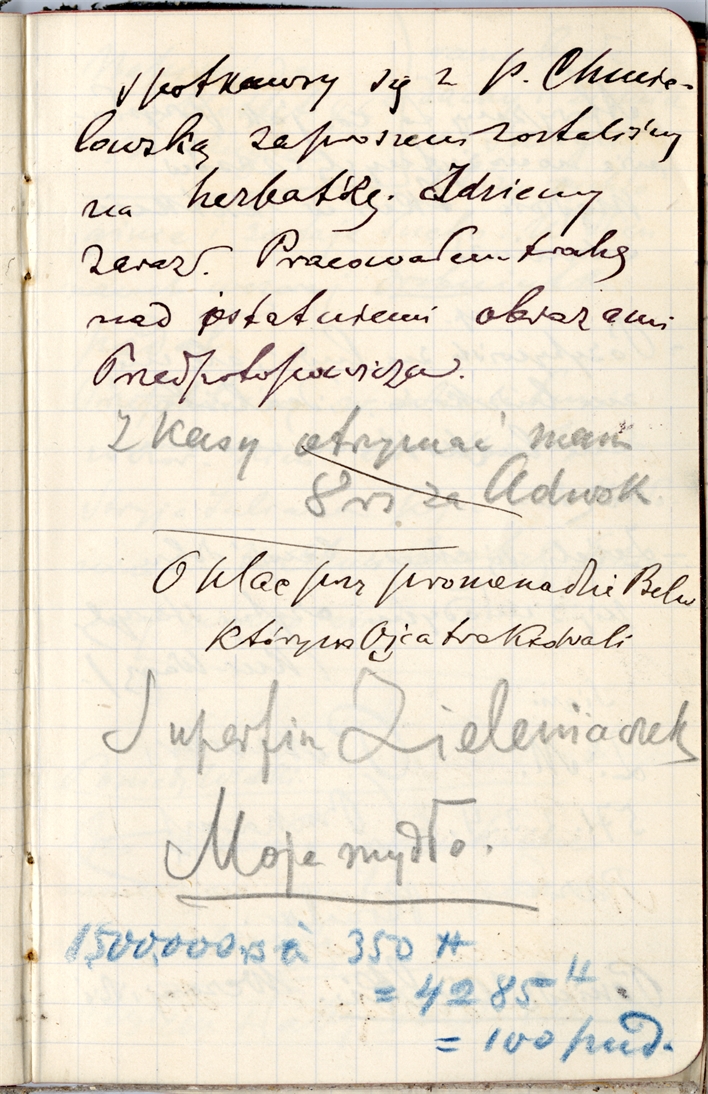 spotkawszy się z p. Chmie-
lowską zaproszeni zostaliśmy
na herbatkę. Idziemy
zaraz. Pracowałem trochę
nad ostatniemi obrazami
Przedpotopowicza.
Z kasy otrzymać mam
8 rs. za Adwok
promenadzie
Ojca traktowali
Superfin Zieleniaczek
Moje mydło.
1,500,000 à 350 #
= 4285 #
= 100 pud.